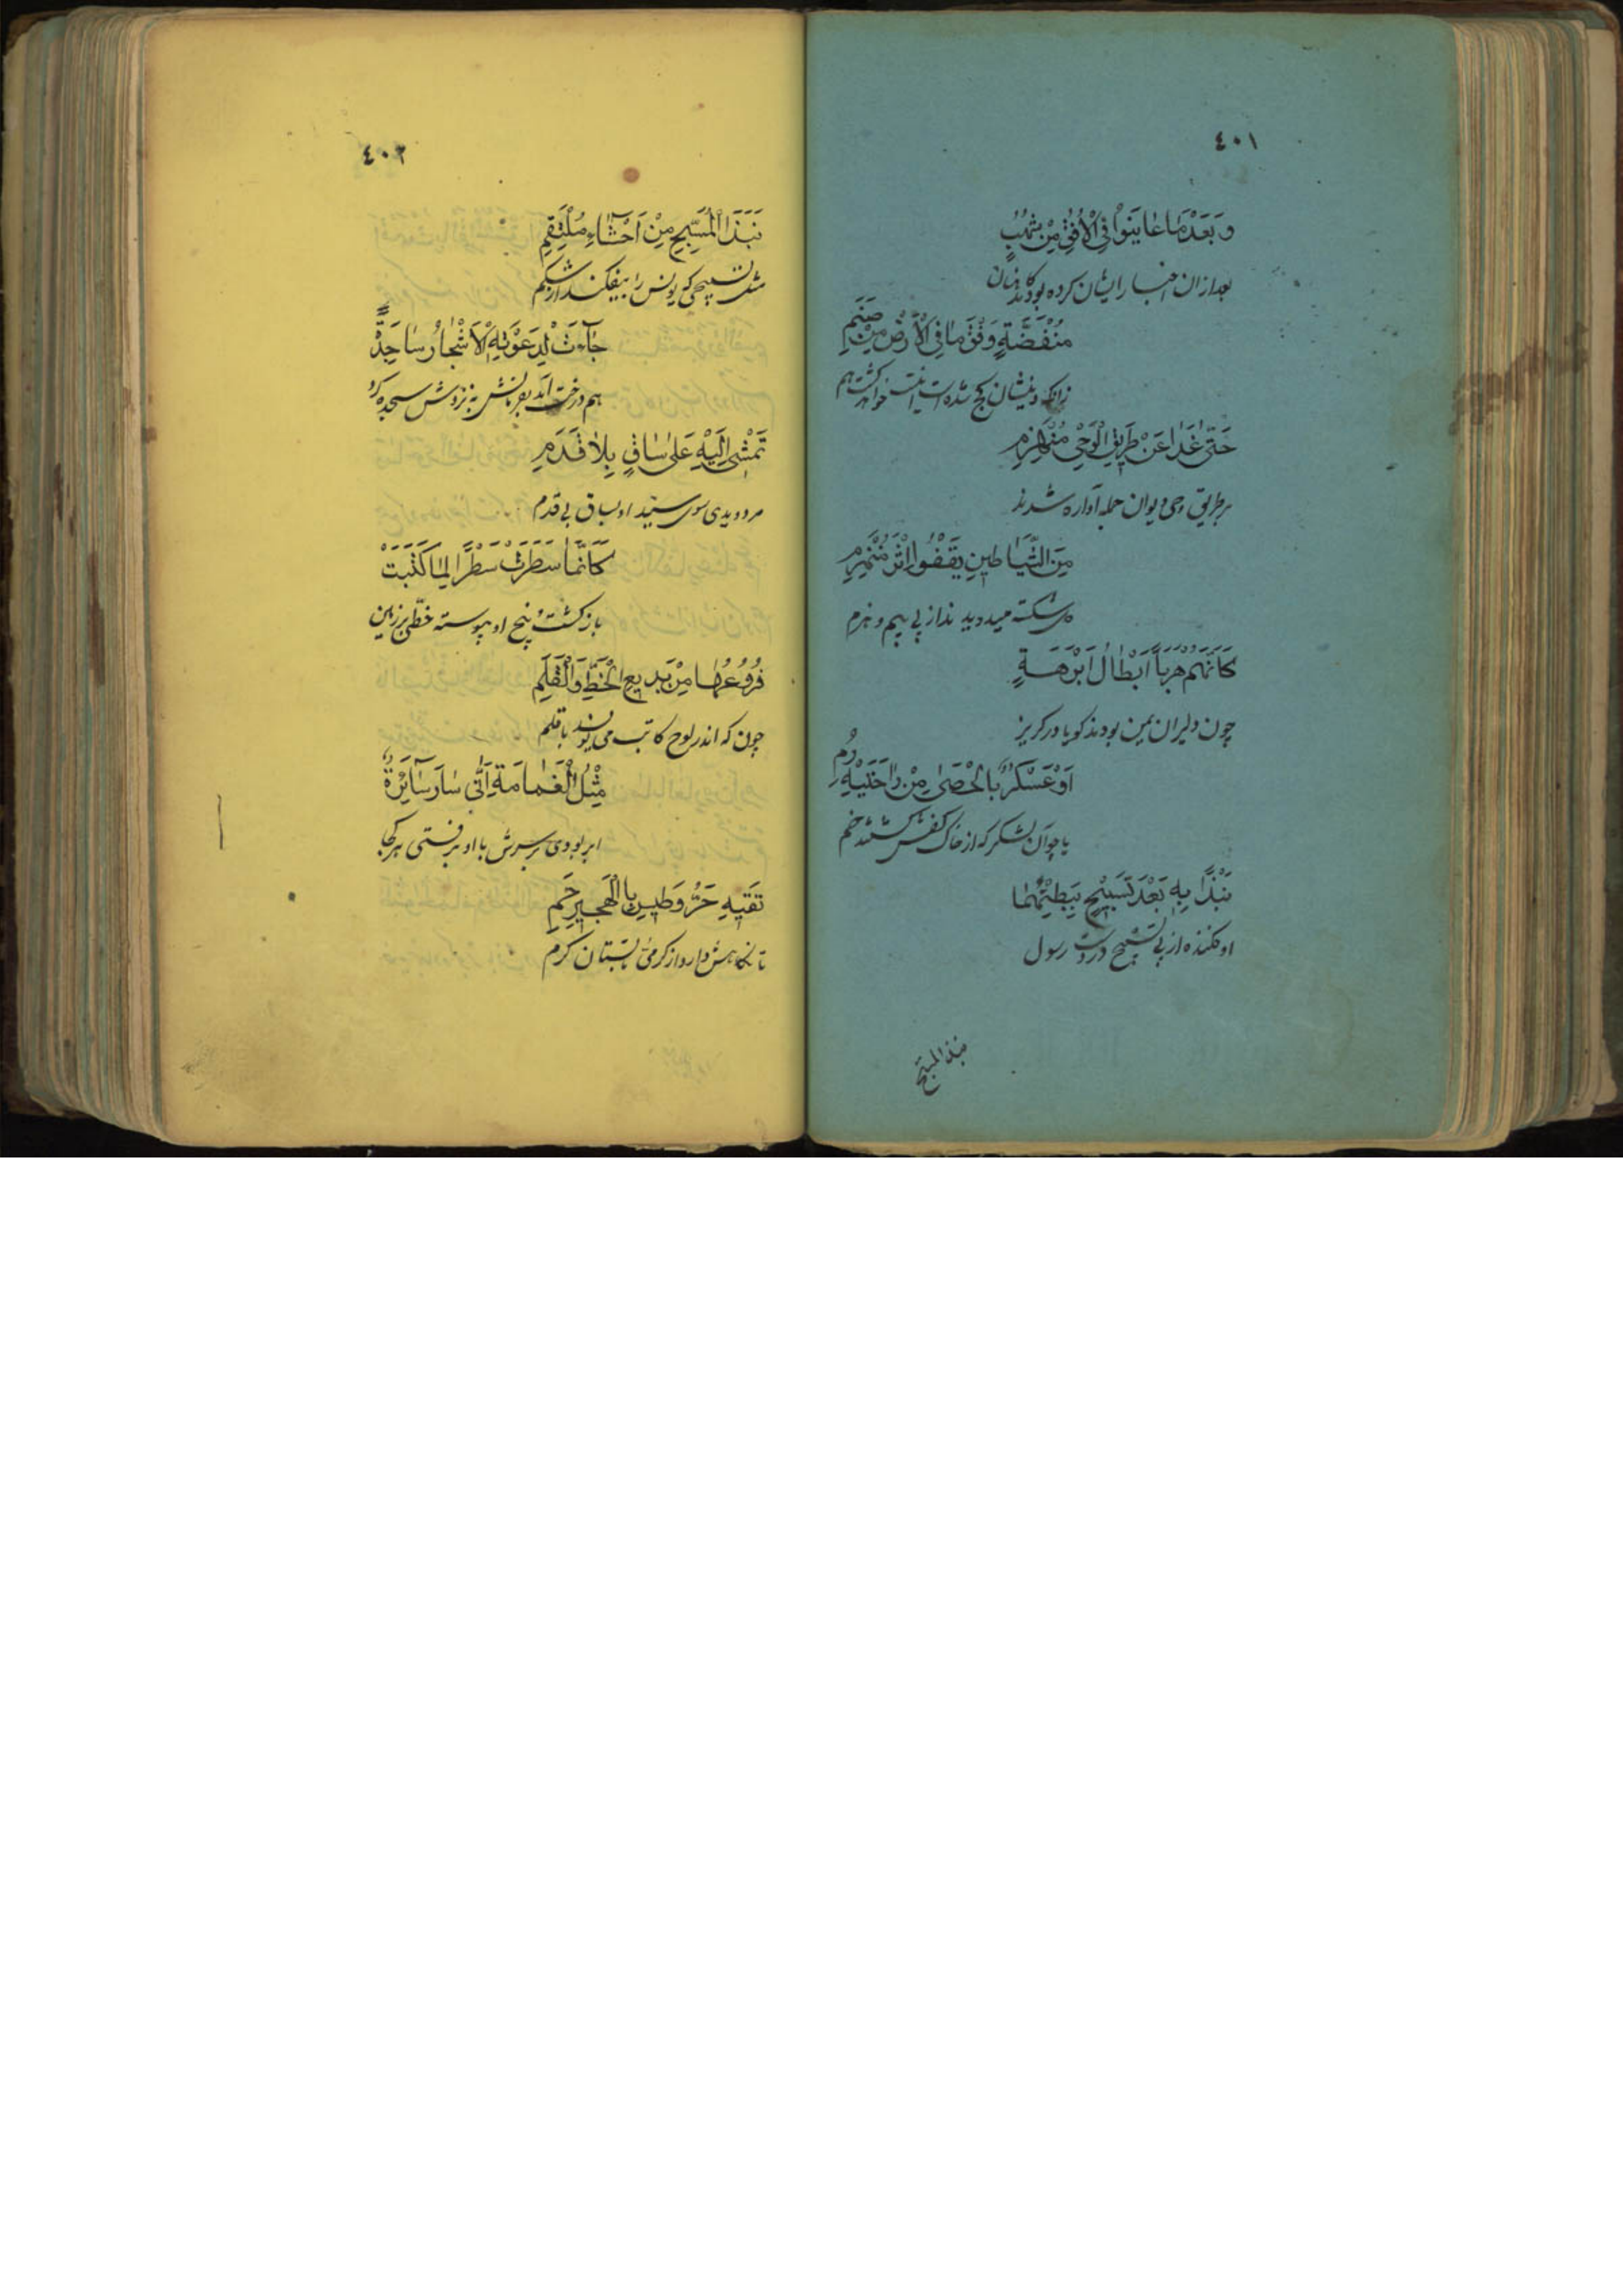 ٤٠١
وَبَعْدَ مَا عَايَنُوْا فِى الْاُفُقِ مِنْ شُهُبٍ
بعد ازان اخبار ایشان کرده بود کاهنان
مُنْقَضَّةٍ وَفْقَ مَا فِى الْاَرْضِ مِنْ صَنَمِ
زانکه دینشان کج شده است خواهد گشت هم
حَتّٰى غَدَا عَنْ طَرِيقِ الْوَحْىِ مُنْهَزِمٌ
بر طریق وحی دیوان جمله آواره شدند
مِنَ الشَّيَاطِينِ يَقْفُوا اِثْرَ مُنْهَزِمِ
شکسته میدویدند از پی بیم و هزم
كَاَنَّهُمْ هَرَباً اَبْطَالُ اَبْرَهَةٍ
چون دلیران یمن بودند کویا در کریز
اَوْ عَسْكَرٌ بِالْحَصٰى مِنْ رَاحَتَيْهِ رُمِ
یا چو آن لشکر که از خاک کفش گشتند خم
نَبْذًا بِهِ بَعْدَ تَسْبِيْحٍ بِبَطْنِهِمَا
او فکنده از پی تسبیح در دست رسول
نبذ المسبح
٤٠٢
نَبْذَ الْمُسَبِّحِ مِنْ اَحْشَآءِ مُلْتَقِمِ
مثل تسبیحی که یونس را بیفکند از شکم
جَآءَتْ لِدَعْوَتِهِ الْاَشْجَارُ سَاجِدَةً
هم درخت آمد بفرمانش به نزدش سجده کرد
تَمْشِى اِلَيْهِ عَلٰى سَاقٍ بِلَا قَدَمِ
مردویدی سوی سید او بساق بی قدم
كَاَنَّمَا سَطَرَتْ سَطْرًا لِمَا كَتَبَتْ
باز کشت و بیخ او پیوسته خطی بر زمین
فُرُوْعُهَا مِنْ بَدِيعِ الْخَطِّ وَالْقَلَمِ
چون که اندر لوح کاتب می نویسد با قلم
مِثْلُ الْغَمَامَةِ اَنّٰى سَارَ سَآئِرَةٌ
ابر بودی بر سرش با او برفتی هر کجا
تَقِيهِ حَرَّ وَطِيسٍ بِالْهَجِيرِ حَمِ
تا نکاهش دارد از کرمی تابستان کرم